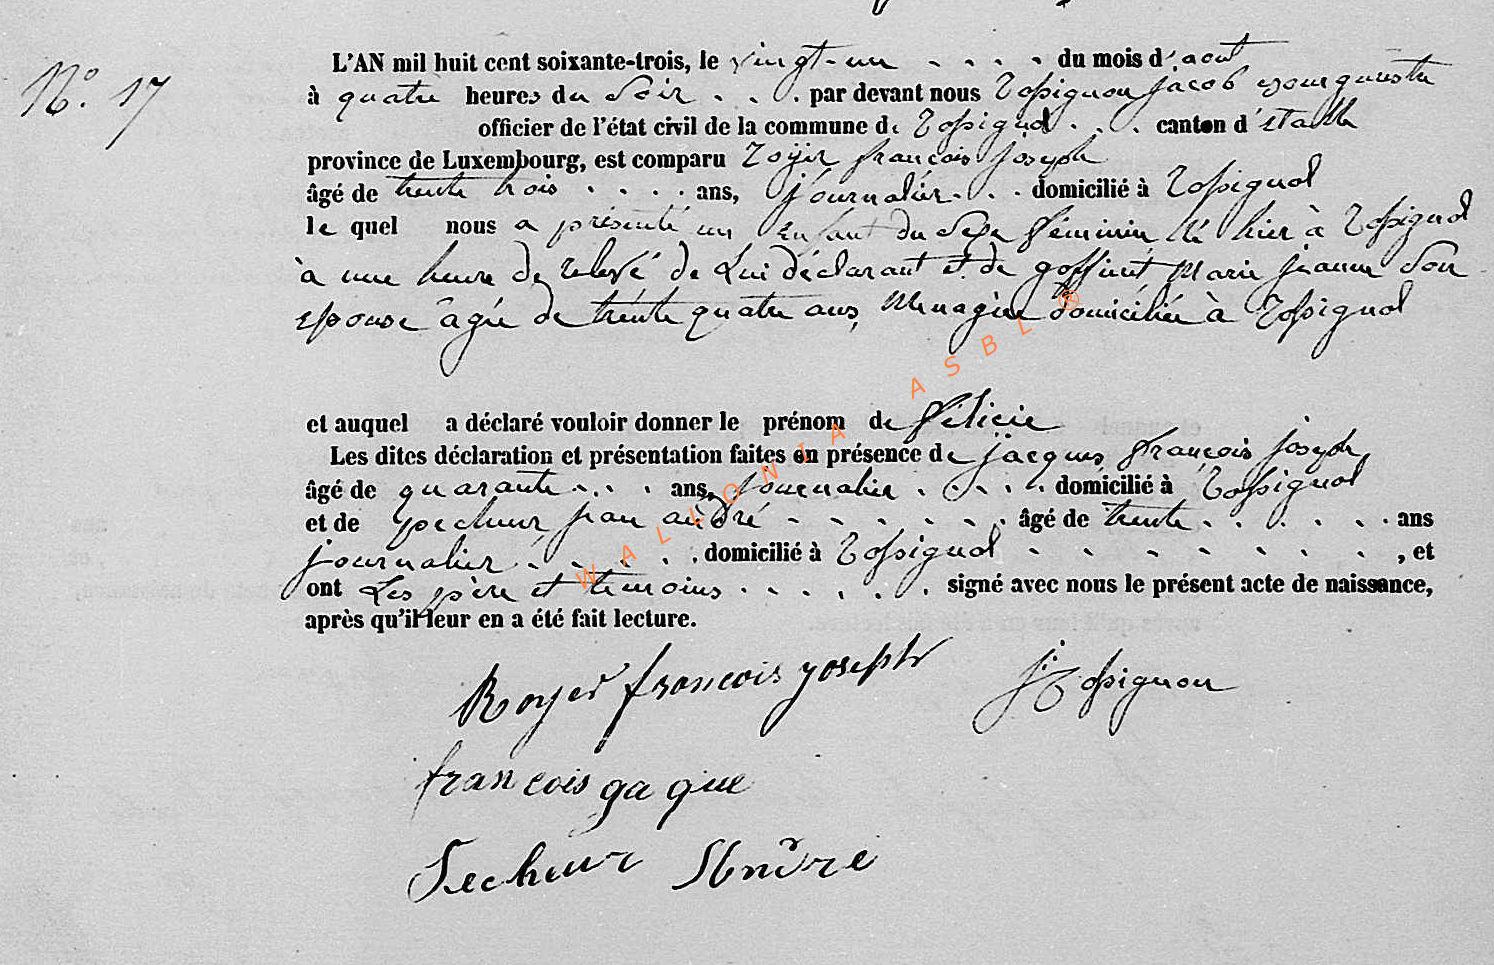 N° 17
L'AN mil huit cent soixante-trois, le vingt-un . . . . du mois d'aout
à quatre heures du Soir . . . par devant nous Rossignon Jacob Bourgmestre
officier de l'état civil de la commune de Rossignol . . . canton d'Etalle
province de Luxembourg, est comparu Royer françois Joseph
âgé de trente trois . . . . ans, journalier . . . domicilié à Rossignol
le quel nous a présenté un Enfant du Sexe féminin Né hier à Rossignol
à une heure de relevé de Lui déclarant et de goffinet Marie jeanne Son
epouse âgée de trente quatre ans, Menagère domiciliée à Rossignol
et auquel a déclaré vouloir donner le prénom de Félicie
Les dites déclaration et présentation faites en présence de jacques françois joseph,
âgé de quarante . . . ans, journalier . . . . . domicilié à Rossignol
et de pecheur, jean andré . . . . . . . âgé de trente . . . . . . ans
journalier . . . . . domicilié à Rossignol . . . . . . . . , et
ont Les père et temoins . . . . . . signé avec nous le présent acte de naissance,
après qu'il leur en a été fait lecture.
Royer françois joseph J. Rossignon
françois ga que
Pecheur Andre
WALLONIA ASBL ®